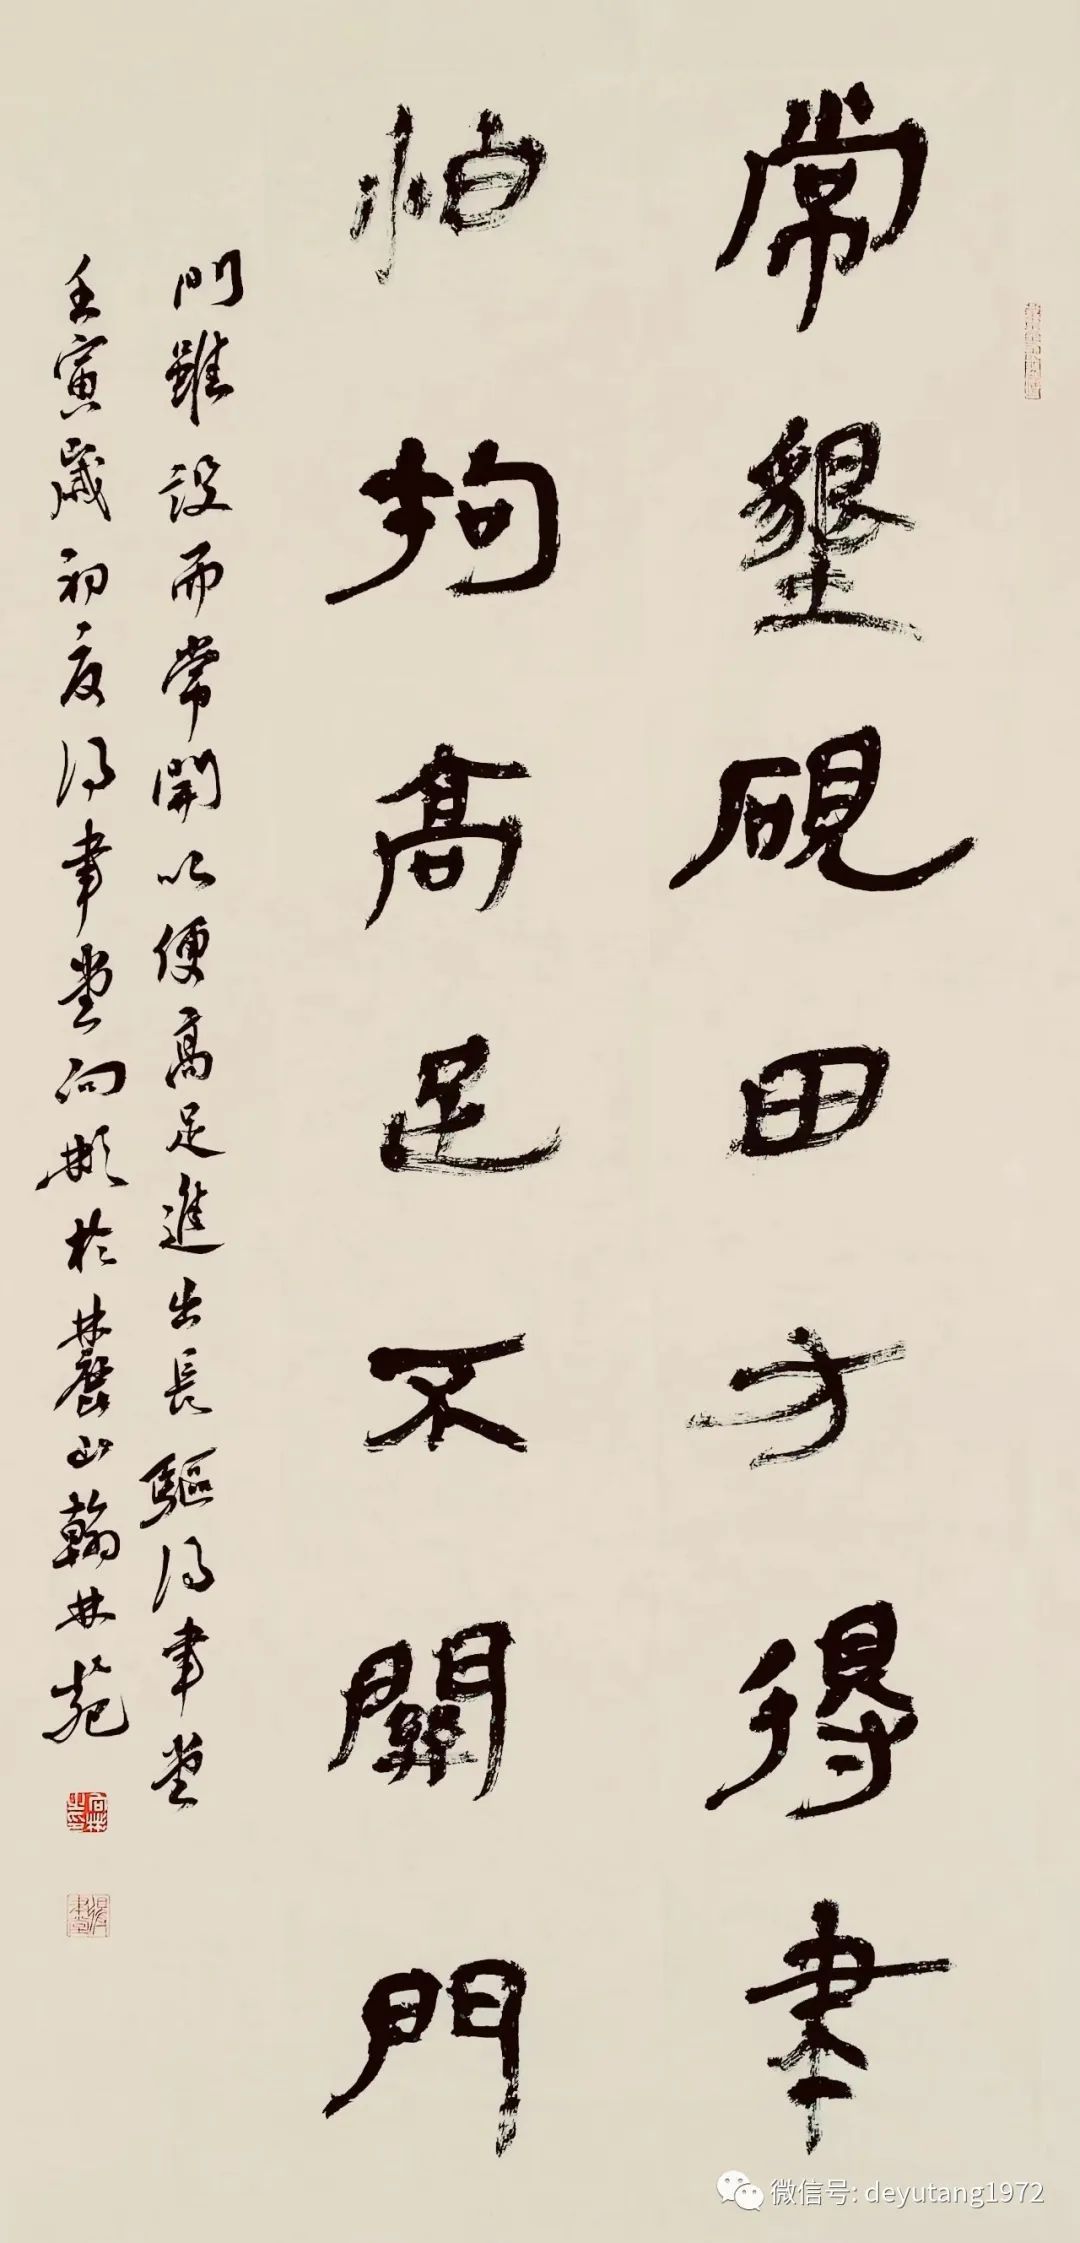 常墾硯田方得聿
怕拘高足不關門
門雖設而常開以便高足進出長驅得聿堂
壬寅歲初夏得聿堂向彬於麓山翰林苑
微信号: deyutang1972